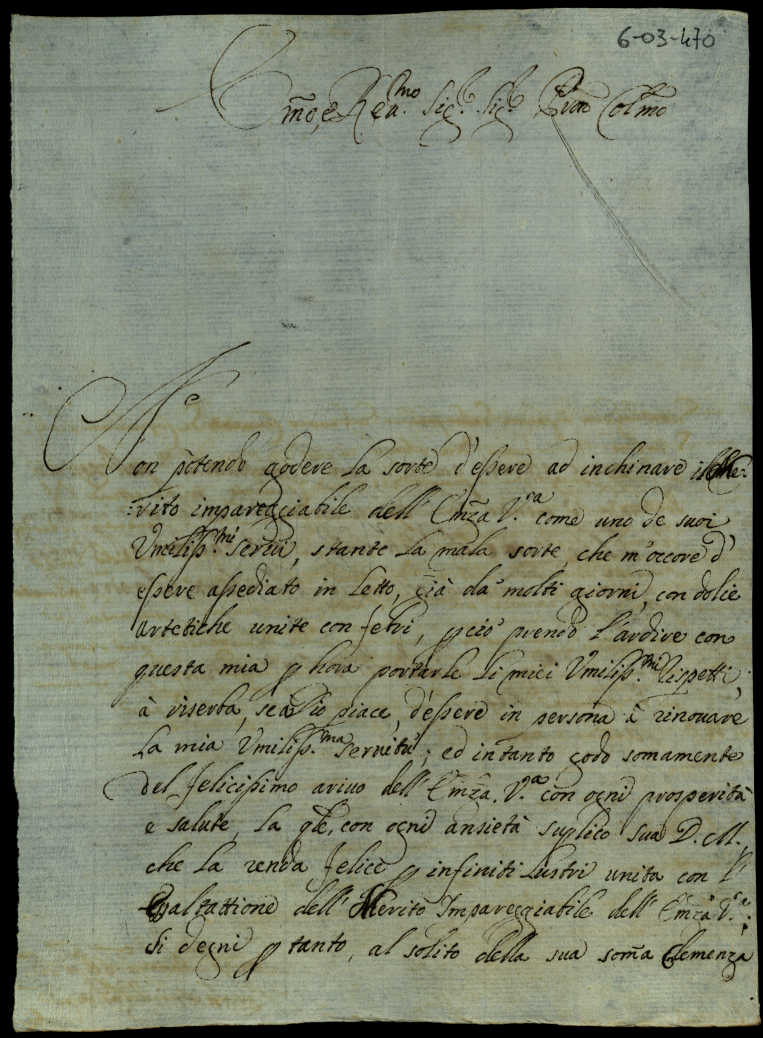 6-03-470
Em̃o, e Reu.mo Sig.r Sig.r Pron Colmo
Non potendo godere la sorte d'essere ad inchinare il Me=
=rito impareggiabile dell' Emz̃a V.ra come uno de suoi
Vmiliss.mi serui, stante la mala sorte, che m'occore d'
essere assediato in letto, già da' molti giorni, con dolie
artetiche unite con febri, p ciò prendo l'ardire con
questa mia p hora portarle li miei Vmiliss.mi Rispetti,
à riserba, se à Dio piace, d'essere in persona à rinouare
la mia Vmiliss.ma seruitù; ed intanto godo somamente
del felicissimo ariuo dell' Emz̃a V.ra con ogni prosperità
e salute, la qle, con ogni ansietà suplico sua D. M.
che la renda felice p infiniti lustri unita con l'
Esaltattione dell' Merito Impareggiabile dell' Emz̃a V.ra;
Si degni p tanto, al solito della sua som̃a Clemenza